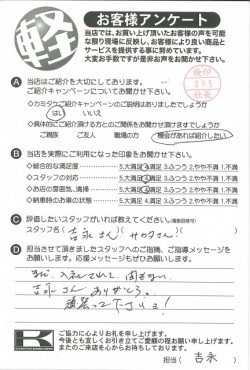 軽
お客様アンケート
当店では、お買い上げ頂いたお客様の声を可能
な限り現場に反映し、お客様により良い商品と
サービスを提供する事に努めています。
大変お手数ですが是非お声をお聞かせ下さい。
検印
社長
A 当店はご紹介を大切にしてあります。
ご紹介キャンペーンについてお聞かせ下さい。
◇カミタケご紹介キャンペーンのご説明はありましたでしょうか
はい いいえ
◇具体的にご紹介頂ける方とのご関係をお聞かせ頂けますでしょうか
ご親族 ご友人 職場の方 機会があれば紹介したい
B 当店を実際にご利用になった印象をお聞かせ下さい。
◇総合的な満足度 5.大満足 4.満足 3.ふつう 2.やや不満 1.不満
◇スタッフの対応 5.大満足 4.満足 3.ふつう 2.やや不満 1.不満
◇お店の雰囲気、清掃 5.大満足 4.満足 3.ふつう 2.やや不満 1.不満
◇納車時のお車の状態 5.大満足 4.満足 3.ふつう 2.やや不満 1.不満
C 評価したいスタッフがいれば教えてください。(複数回答可)
スタッフ名( 吉永さん )( さん )
D 担当させて頂きましたスタッフへのご指摘、ご指導メッセージを
お願いします。応援メッセージもぜひお願いします。
吉永さん ありがとう。
頑張って下さい!
K
ご協力に心よりお礼を申し上げます。
今後とも宜しくお引き立てご愛顧の程お願い申し上げます。
またのご来店を心からお待ちしております。
担当( 吉永 )